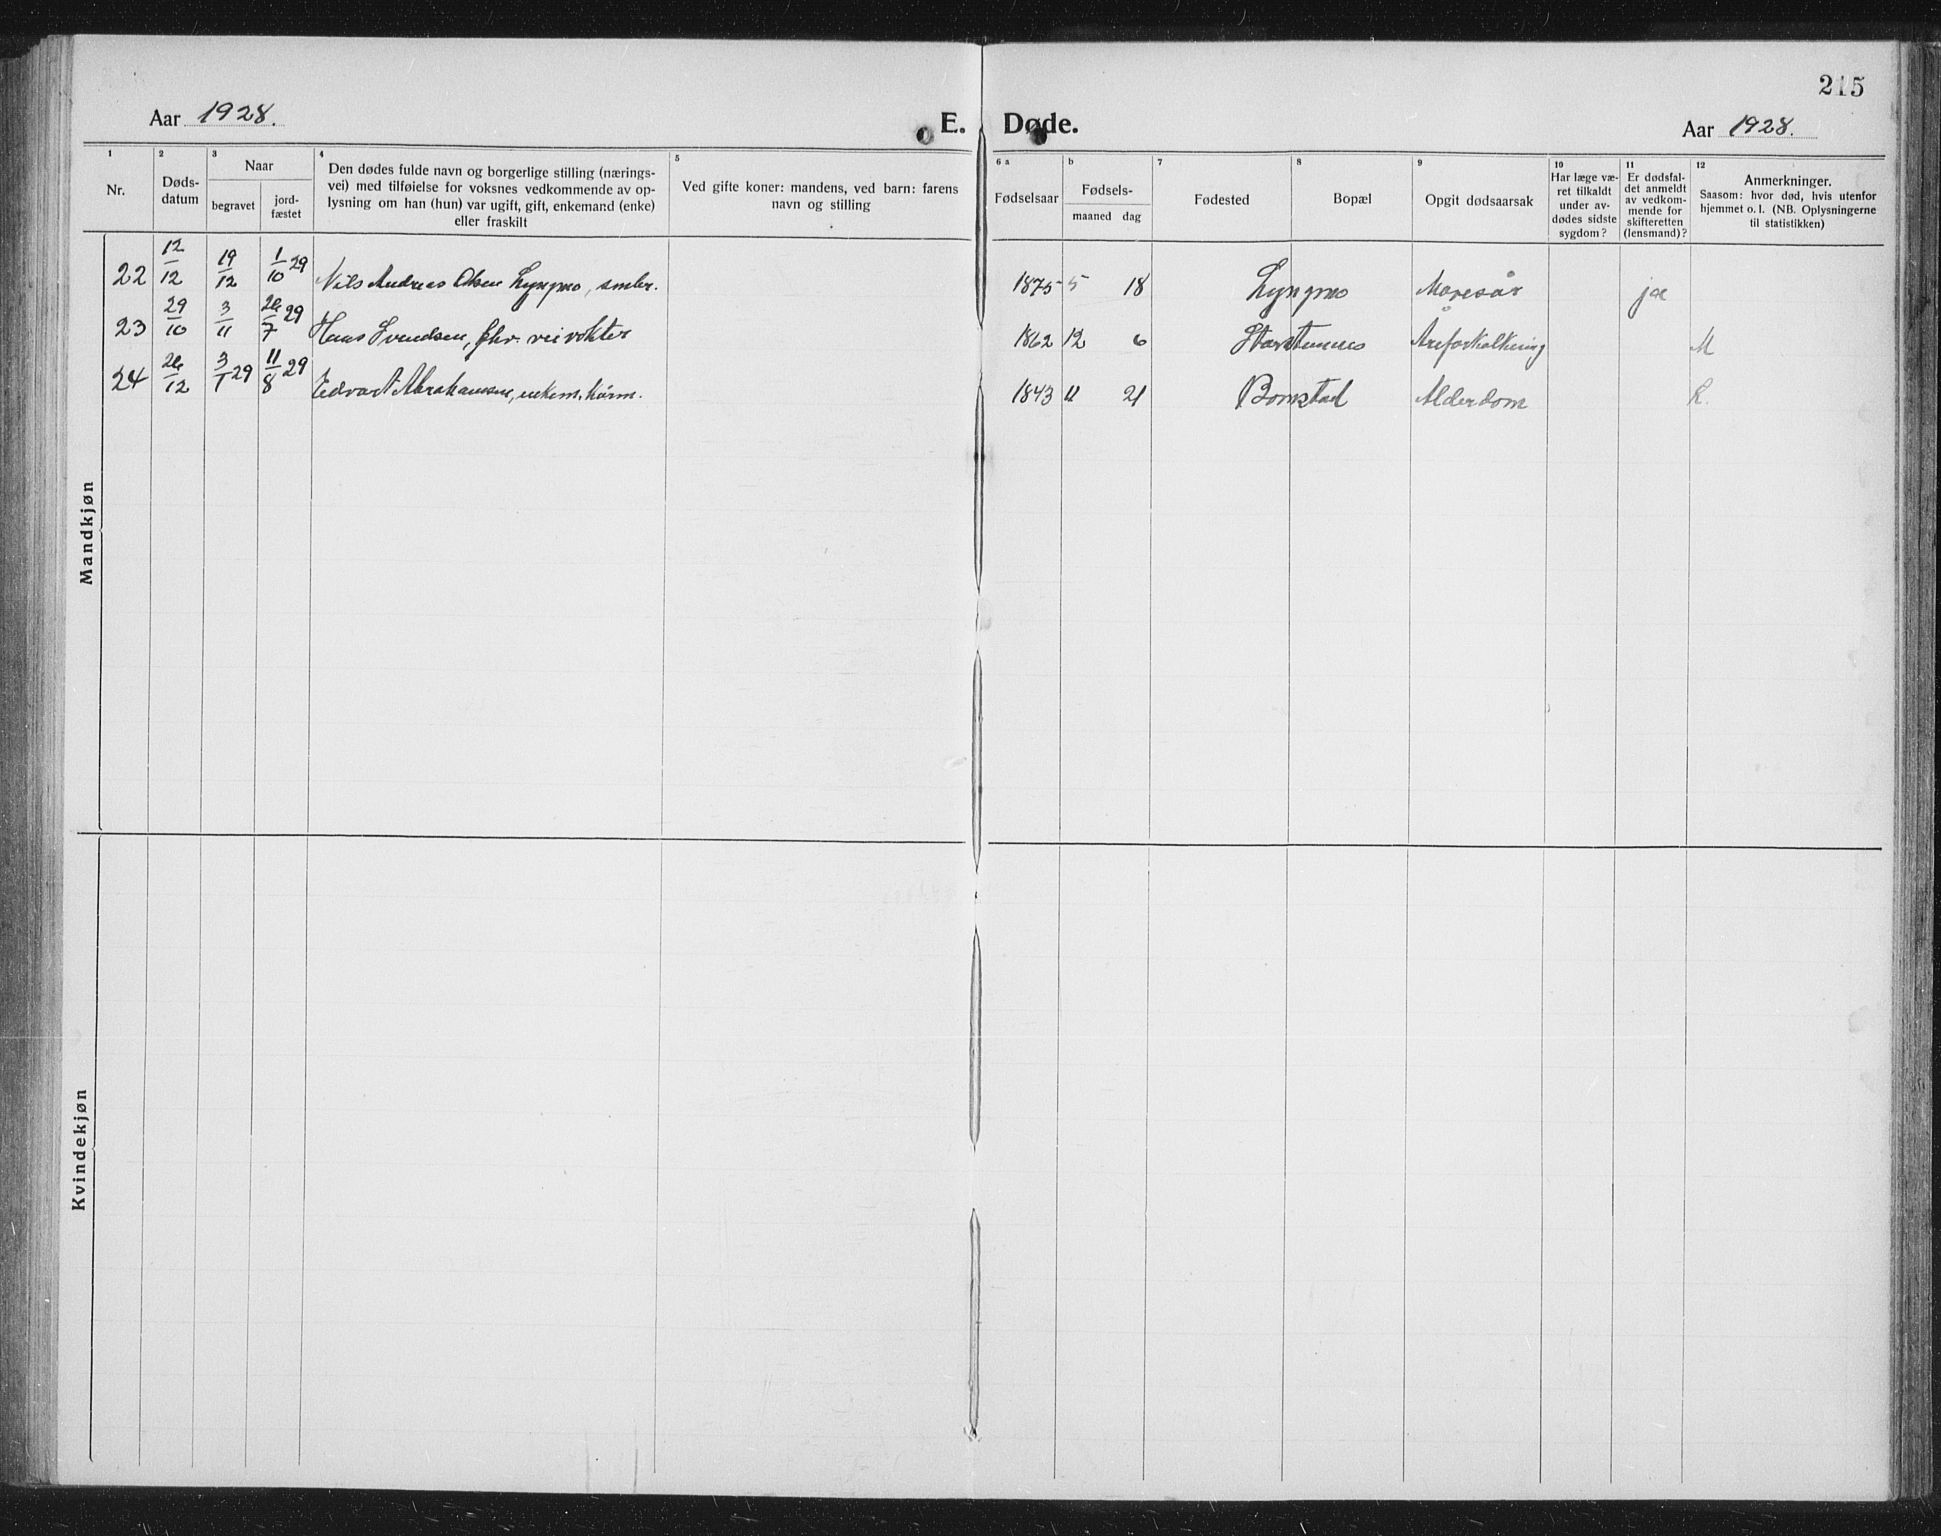 215
Aar 1928.
E. Døde.
Aar 1928.
1
2
3
4
5
6 a
b
7
8
9
10
11
12
Nr.
Døds-
datum
Naar
begravet
jord-
fæstet
Den dødes fulde navn og borgerlige stilling (nærings-
vei) med tilføielse for voksnes vedkommende av op-
lysning om han (hun) var ugift, gift, enkemand (enke)
eller fraskilt
Ved gifte koner: mandens, ved barn: farens
navn og stilling
Fødselsaar
Fødsels-
maaned dag
Fødested
Bopæl
Opgit dødsaarsak
Har læge væ-
ret tilkaldt
under av-
dødes sidste
sygdom?
Er dødsfal-
det anmeldt
av vedkom-
mende for
skifteretten
(lensmand)?
Anmerkninger.
Saasom: hvor død, hvis utenfor
hjemmet o. l. (NB. Oplysningerne
til statistikken)
22 12/12 19/12 1/10 29 Nils Andreas Olsen Lyngmo, 1875 5 18 Lyngmo Mavesår ja
23 29/10 3/11 26/7 29 Hans Svendsen, fhv. veivokter 1862 12 6 Åreforkalkning M
24 26/12 3/1 29 11/8 29 Edvart Abrahamsen, enkem. kårm. 1843 11 21 Bomstad Alderdom L.
Mandkjøn
Kvindekjøn